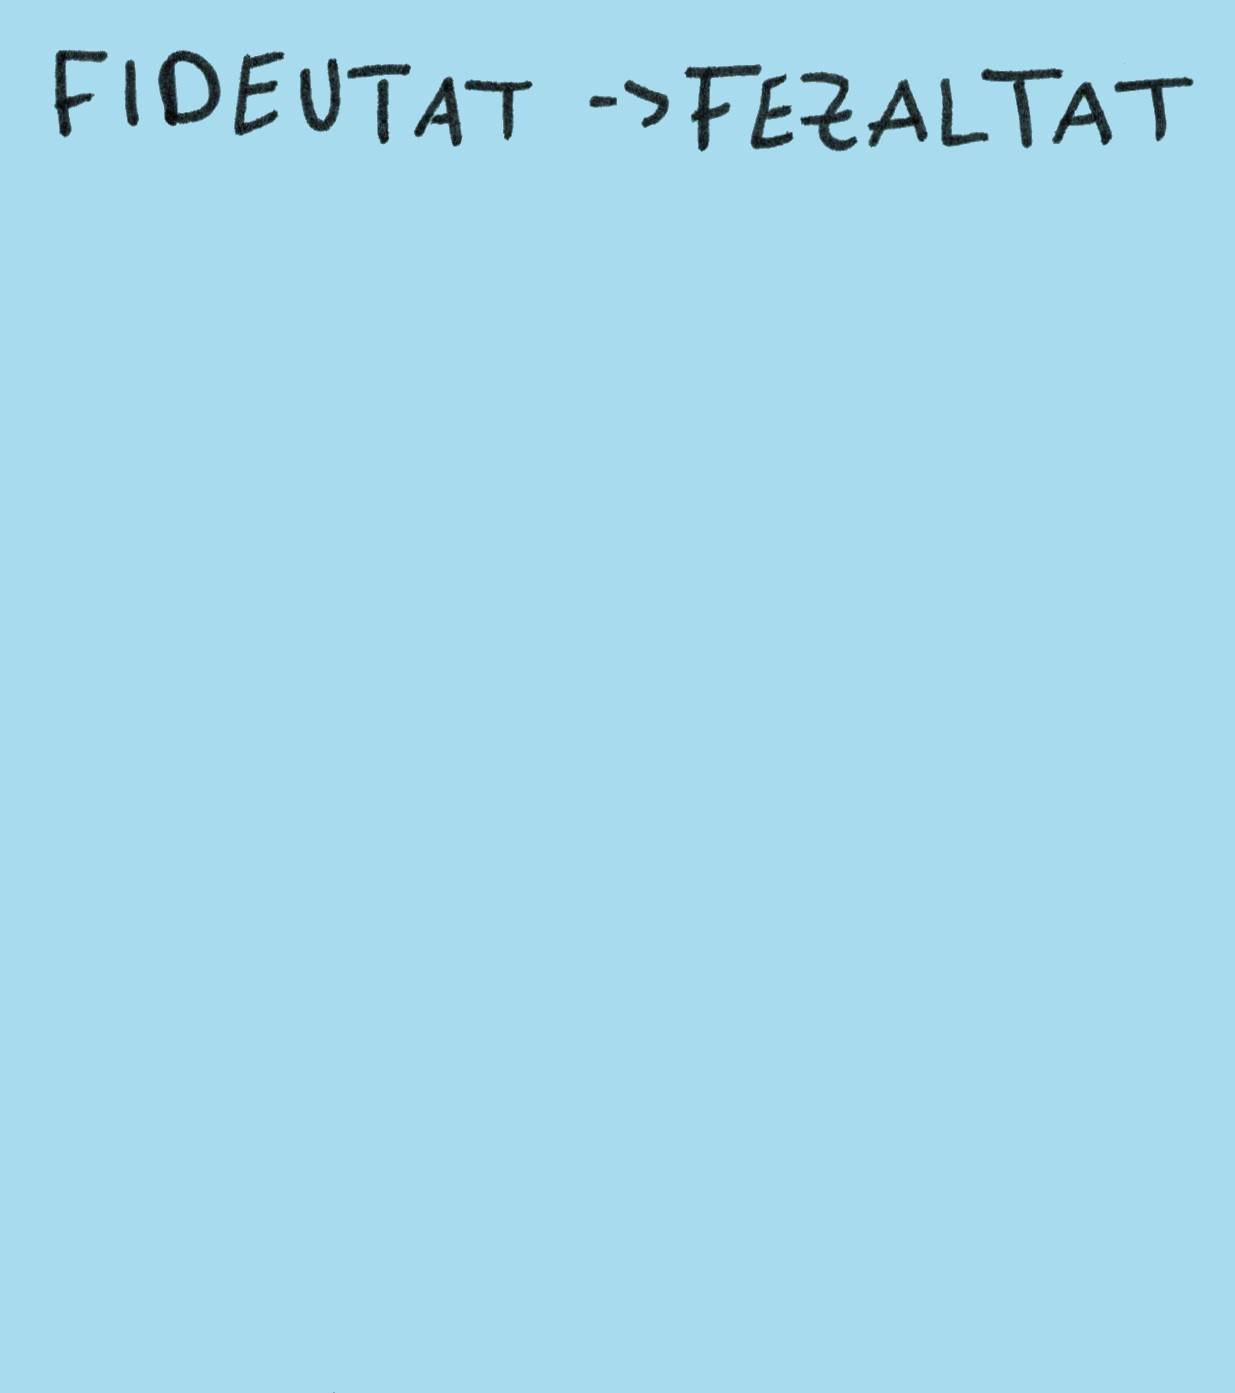 FIDEUTAT -> FEZALTAT